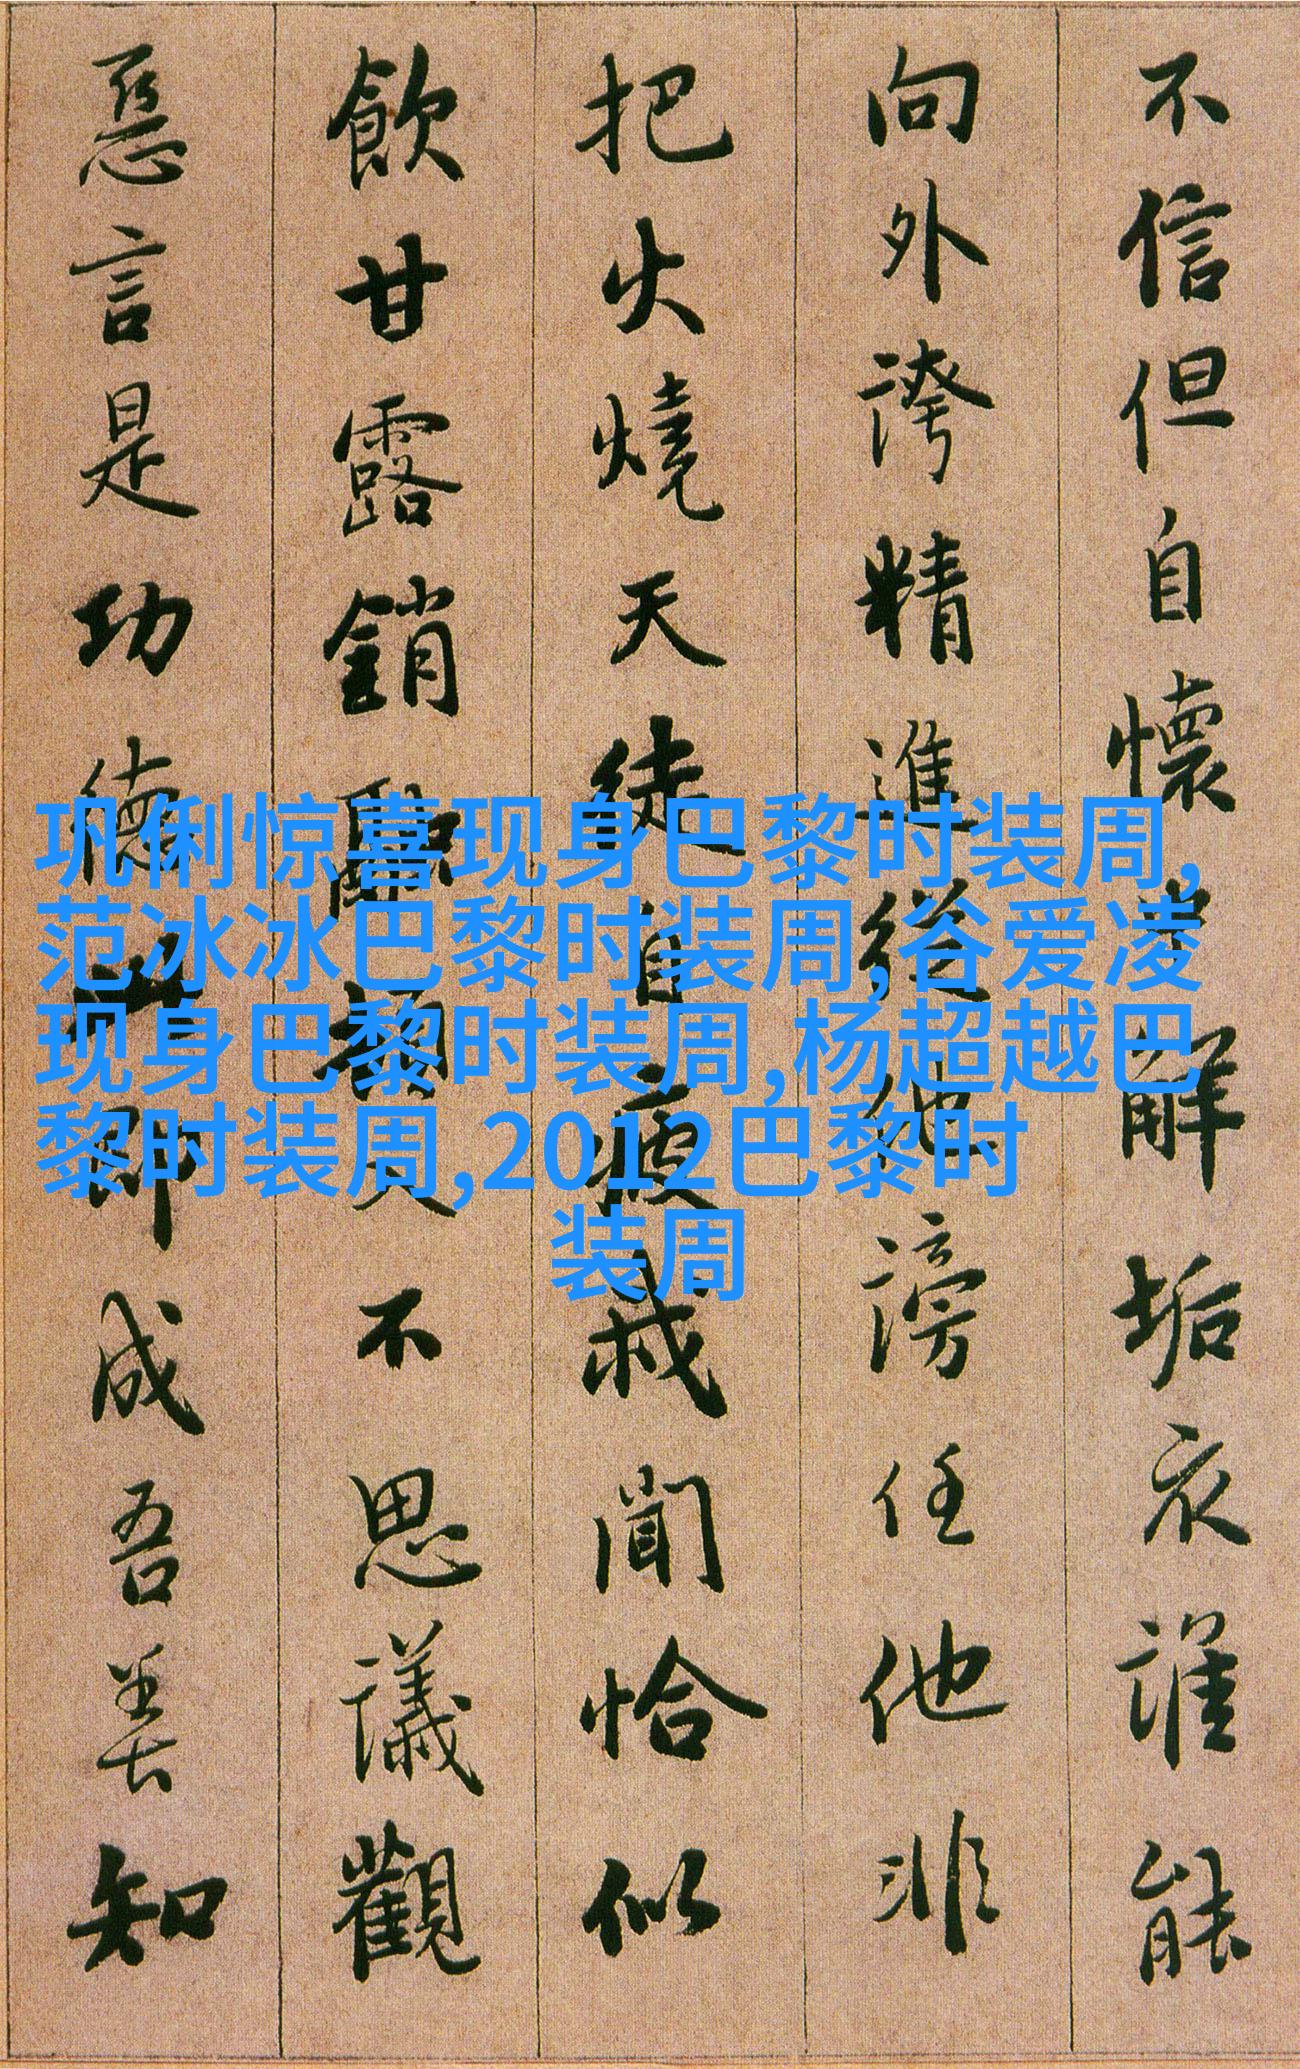 不信但自懷中解垢衣誰能
向外誇精進從他謗任他非
把火燒天徒自疲我聞恰似
飲甘露銷融頓入不思議觀
惡言是功德此即成吾善知
巩俐惊喜现身巴黎时装周,
范冰冰巴黎时装周,谷爱凌
现身巴黎时装周,杨超越巴
黎时装周,2012巴黎时
装周